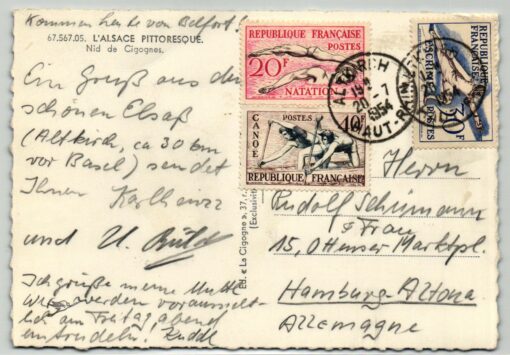 Kommen heute von Belfort!
67.567.05. L'ALSACE PITTORESQUE.
Nid de Cigognes.
Ein Gruß aus dem
schönen Elsaß
(Altkirch, ca 30 km
vor Basel) sendet
Ihnen Karlheinz
und U.
Ich grüße meine Mutti
Wir werden voraussicht-
lich am Freitag abend
eintrudeln.
REPUBLIQUE FRANÇAISE
POSTES
20F
NATATION
CANOE
POSTES
40F
REPUBLIQUE FRANÇAISE
REPUBLIQUE FRANÇAISE
ESCRIME
POSTES
ALTKIRCH
20-7
1954
HAUT-RHIN
Ed. « La Cigogne », 37,
Herrn
Rudolf Schümann
& Frau
15, Ottenser Marktpl.
Hamburg-Altona
Allemagne